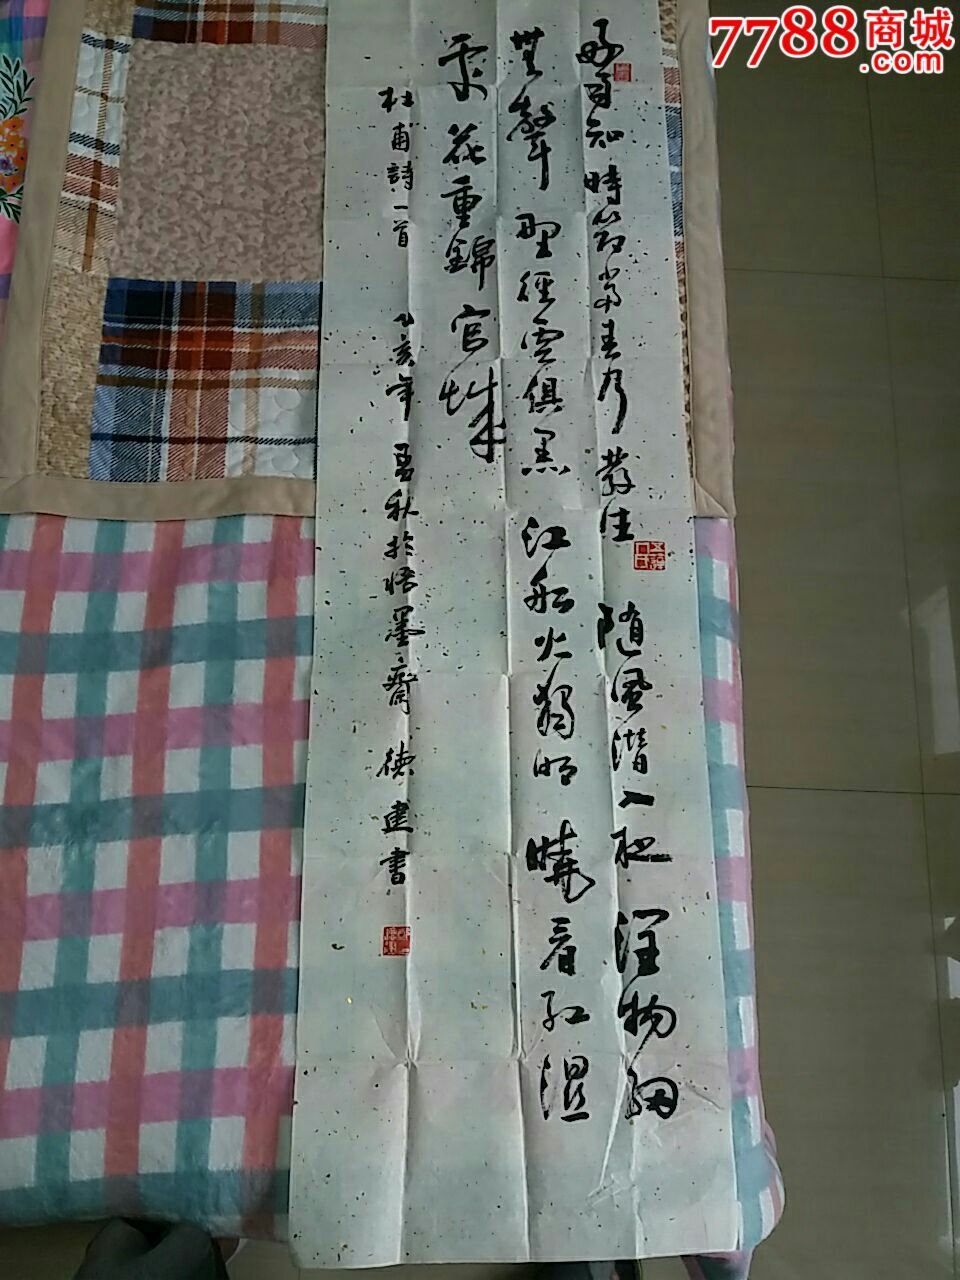 7788商城
好雨知時節當春乃發生随風潛入夜潤物細
無聲野徑雲俱黑江船火獨明曉看紅濕
處花重錦官城
杜甫詩一首 乙亥年孟秋於悟墨齋德建書